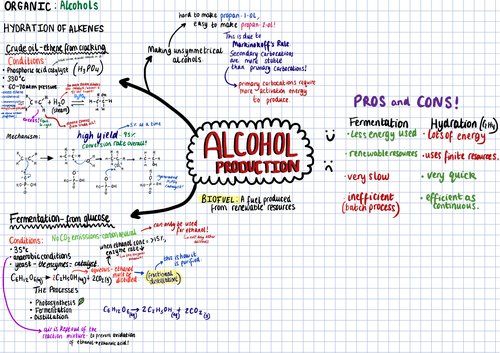 ORGANIC: Alcohols
HYDRATION OF ALKENES
Crude oil - ethene from cracking
Conditions:
• Phosphoric acid catalyst (H3PO4)
• 330°C
• 60-70 atm pressure
+ H2O
(steam)
Mechanism:
high yield 95%
conversion rate overall!
5% at a time
hard to make propan-1-ol,
easy to make propan-2-ol!
Making unsymmetrical
alcohols.
This is due to
Markovnikoff's Rule
Secondary carbocations
are more stable
than primary carbocations!
primary carbocations require
more activation energy
to produce
ALCOHOL
PRODUCTION
BIOFUEL: A fuel produced
from renewable resources
PROS and CONS!
Fermentation
• Less energy used
• renewable resources
• very slow
• inefficient
(batch process)
Hydration (C2H4)
• Lots of energy
• uses finite resources.
• very quick
• efficient as
continuous.
Fermentation - from glucose
Conditions:
• 35°c
• anaerobic conditions
• yeast - the enzymes = catalyst
No CO2 emissions: carbon neutral
can only be used
for ethanol!
when ethanol conc. >15%,
enzyme rate ↓
C6H12O6(aq) → 2C2H5OH(aq) + 2CO2(g)
aqueous - ethanol
must be
distilled
fractional
distillation
this is how it
is purified.
The Processes
• Photosynthesis
• Fermentation
• Distillation
C6H12O6 → 2C2H5OH(aq) + 2CO2(g)
air is kept out of the
reaction mixture - to prevent oxidation
of ethanol → ethanoic acid!